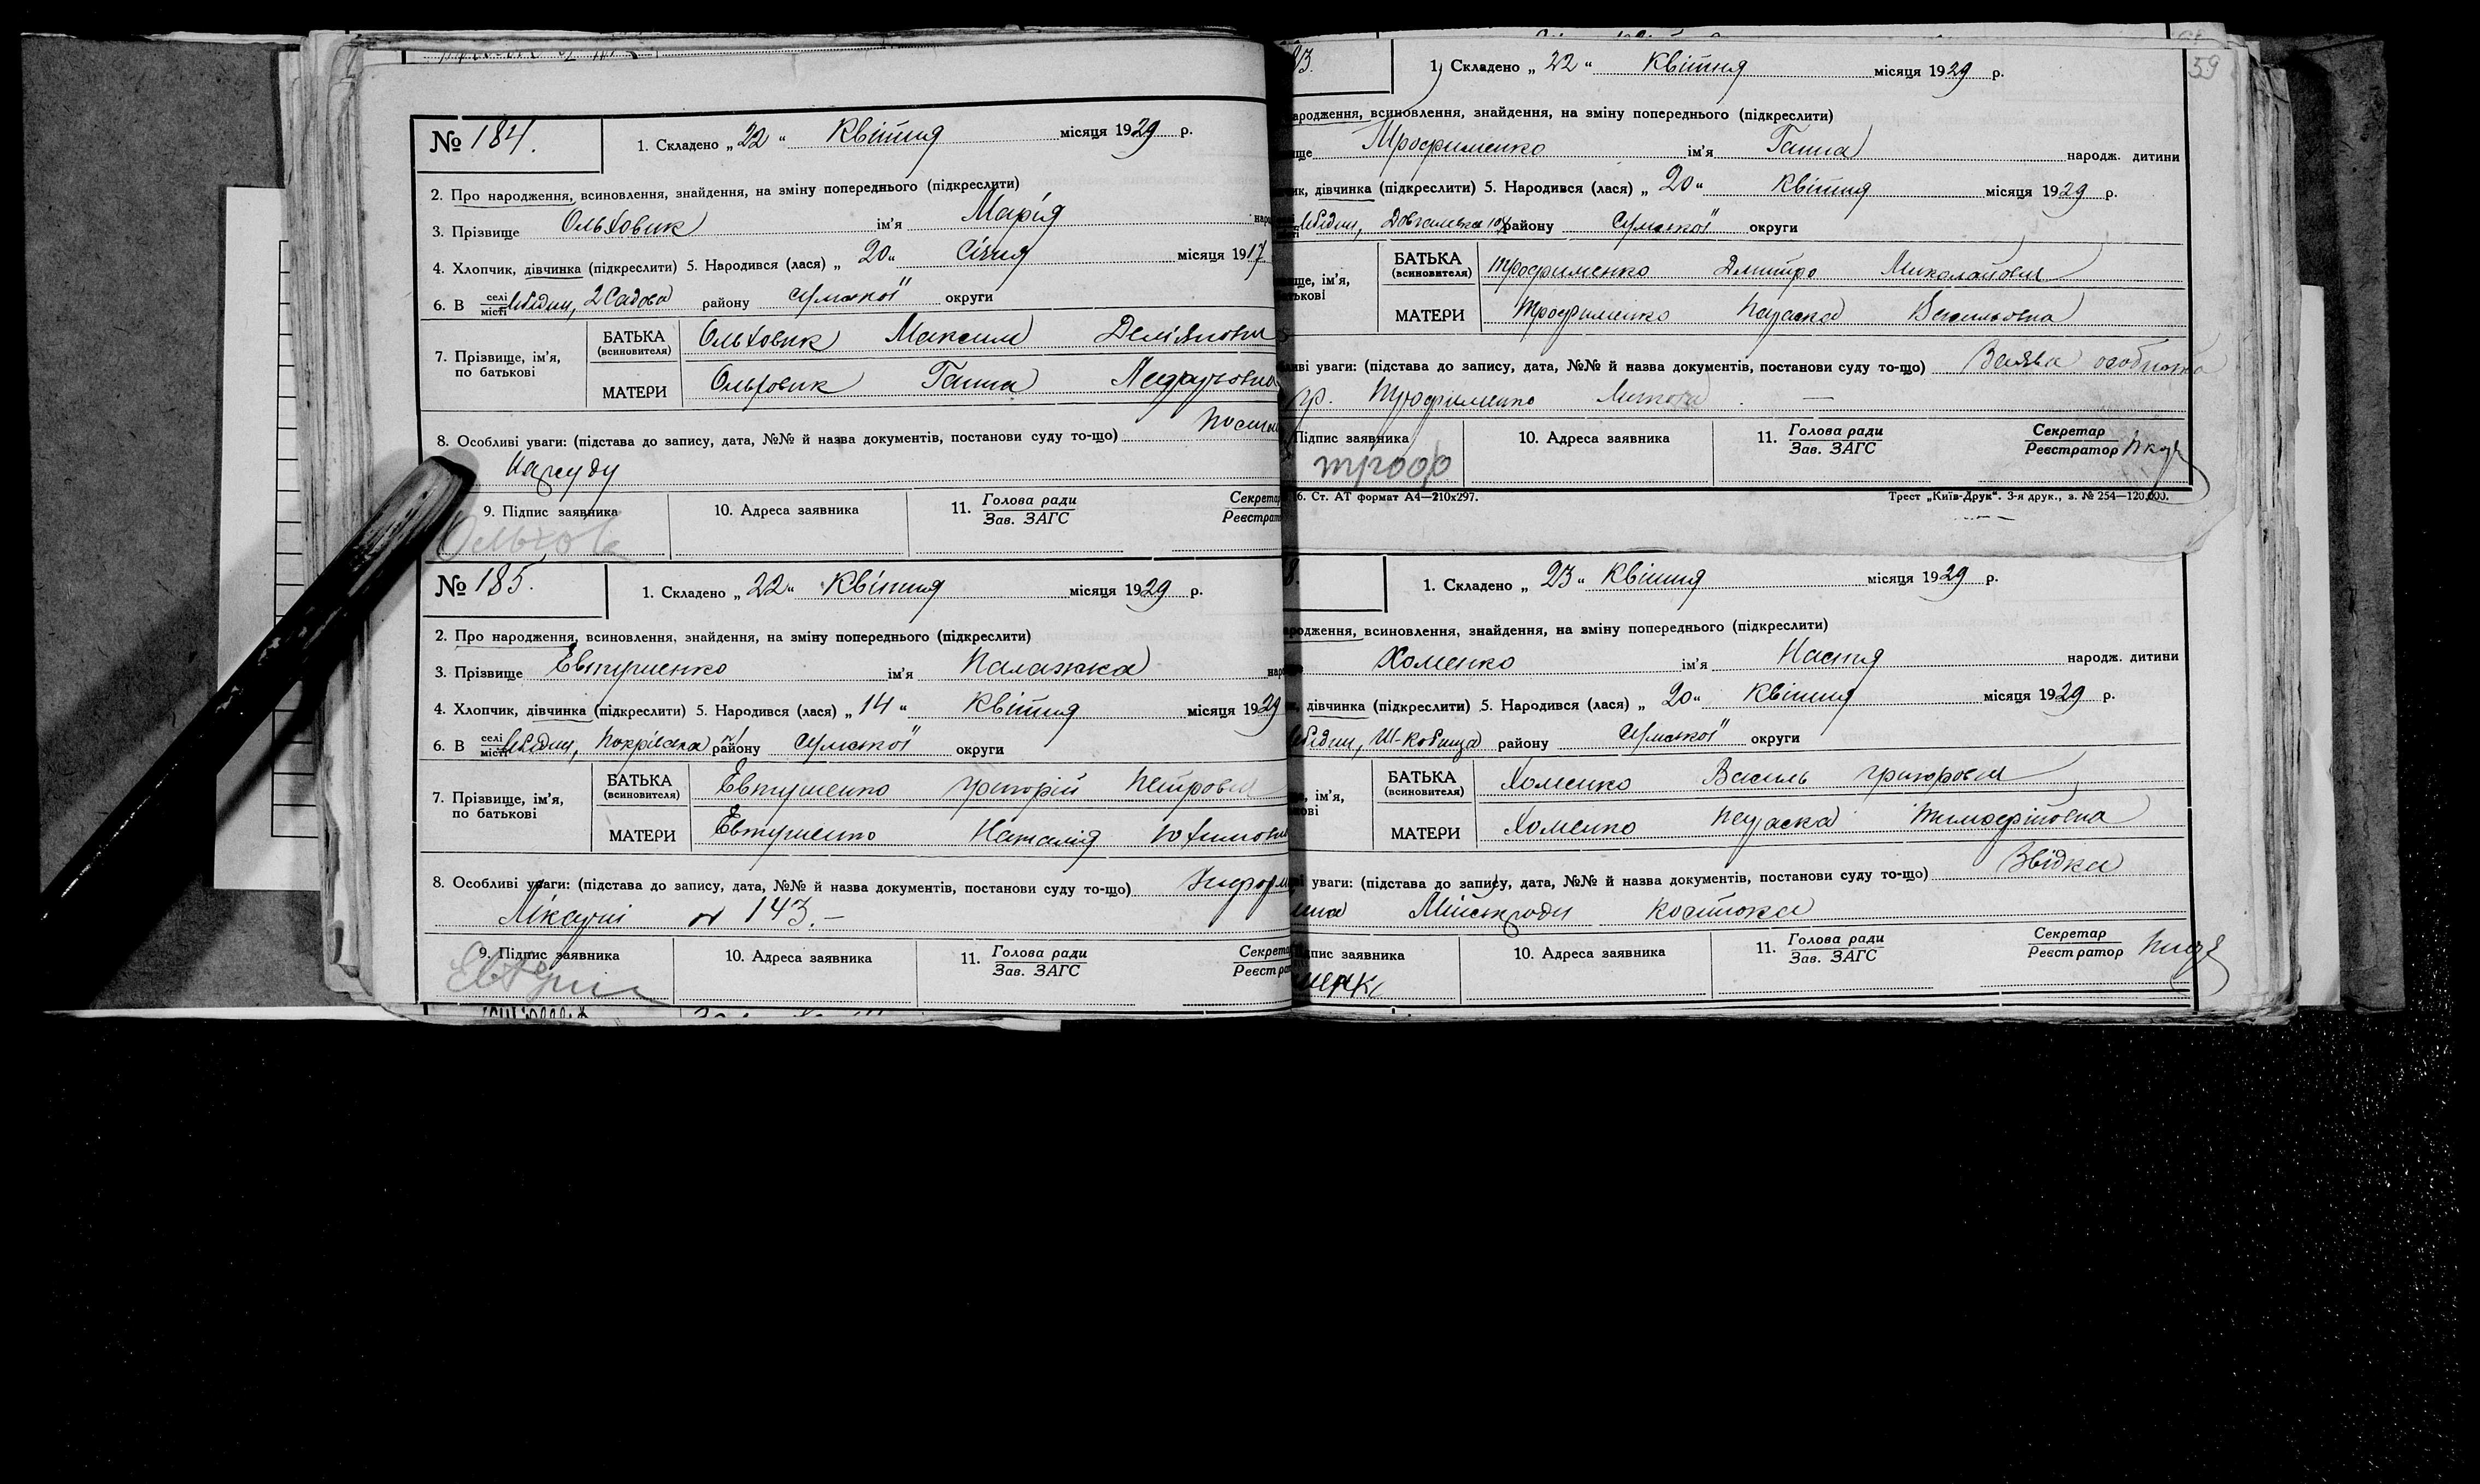 № 184.
1. Складено „ 22 “ Квітня місяця 1929 р.
2. Про народження, всиновлення, знайдення, на зміну попереднього (підкреслити)
3. Прізвище Ольховик ім'я Марія
4. Хлопчик, дівчинка (підкреслити) 5. Народився (лася) „ 20 “ Січня місяця 1917
6. В селі місті Лебедин, 2 Садова району Сумської округи
7. Прізвище, ім'я, по батькові
БАТЬКА (всиновителя) Ольховик Максим
МАТЕРИ Ольховик Ганна
8. Особливі уваги: (підстава до запису, дата, №№ й назва документів, постанови суду то-що)
Нарсуду
9. Підпис заявника 10. Адреса заявника 11. Голова ради Зав. ЗАГС
Ольхов
№ 185.
1. Складено „ 22 “ Квітня місяця 1929 р.
2. Про народження, всиновлення, знайдення, на зміну попереднього (підкреслити)
3. Прізвище Евтушенко ім'я Палажка
4. Хлопчик, дівчинка (підкреслити) 5. Народився (лася) „ 14 “ Квітня місяця 1929
6. В селі місті Лебедин, Покрівська району Сумської округи
7. Прізвище, ім'я, по батькові
БАТЬКА (всиновителя) Евтушенко Григорій Петрович
МАТЕРИ Евтушенко Наталія
8. Особливі уваги: (підстава до запису, дата, №№ й назва документів, постанови суду то-що)
Лікарні № 143. –
9. Підпис заявника 10. Адреса заявника 11. Голова ради Зав. ЗАГС
59
1. Складено „ 22 “ Квітня місяця 1929 р.
всиновлення, знайдення, на зміну попереднього (підкреслити)
Трофименко ім'я Ганна народж. дитини
дівчинка (підкреслити) 5. Народився (лася) „ 20 “ Квітня місяця 1929 р.
району Сумської округи
БАТЬКА (всиновителя) Трофименко Дмитро Миколайович
МАТЕРИ Трофименко Параска Васильовна
уваги: (підстава до запису, дата, №№ й назва документів, постанови суду то-що) Заява особиста
гр. Трофименко
Підпис заявника 10. Адреса заявника 11. Голова ради Зав. ЗАГС Секретар Реєстратор
троф
6. Ст. АТ формат А4—210х297. Трест „Київ-Друк“. 3-я друк., з. № 254—120.000.
1. Складено „ 23 “ Квітня місяця 1929 р.
всиновлення, знайдення, на зміну попереднього (підкреслити)
Хоменко ім'я Настя народж. дитини
дівчинка (підкреслити) 5. Народився (лася) „ 20 “ Квітня місяця 1929 р.
району Сумської округи
БАТЬКА (всиновителя) Хоменко Василь Григорович
МАТЕРИ Хоменко Параска Тимофіївна
уваги: (підстава до запису, дата, №№ й назва документів, постанови суду то-що) Звідка
заявника 10. Адреса заявника 11. Голова ради Зав. ЗАГС Секретар Реєстратор